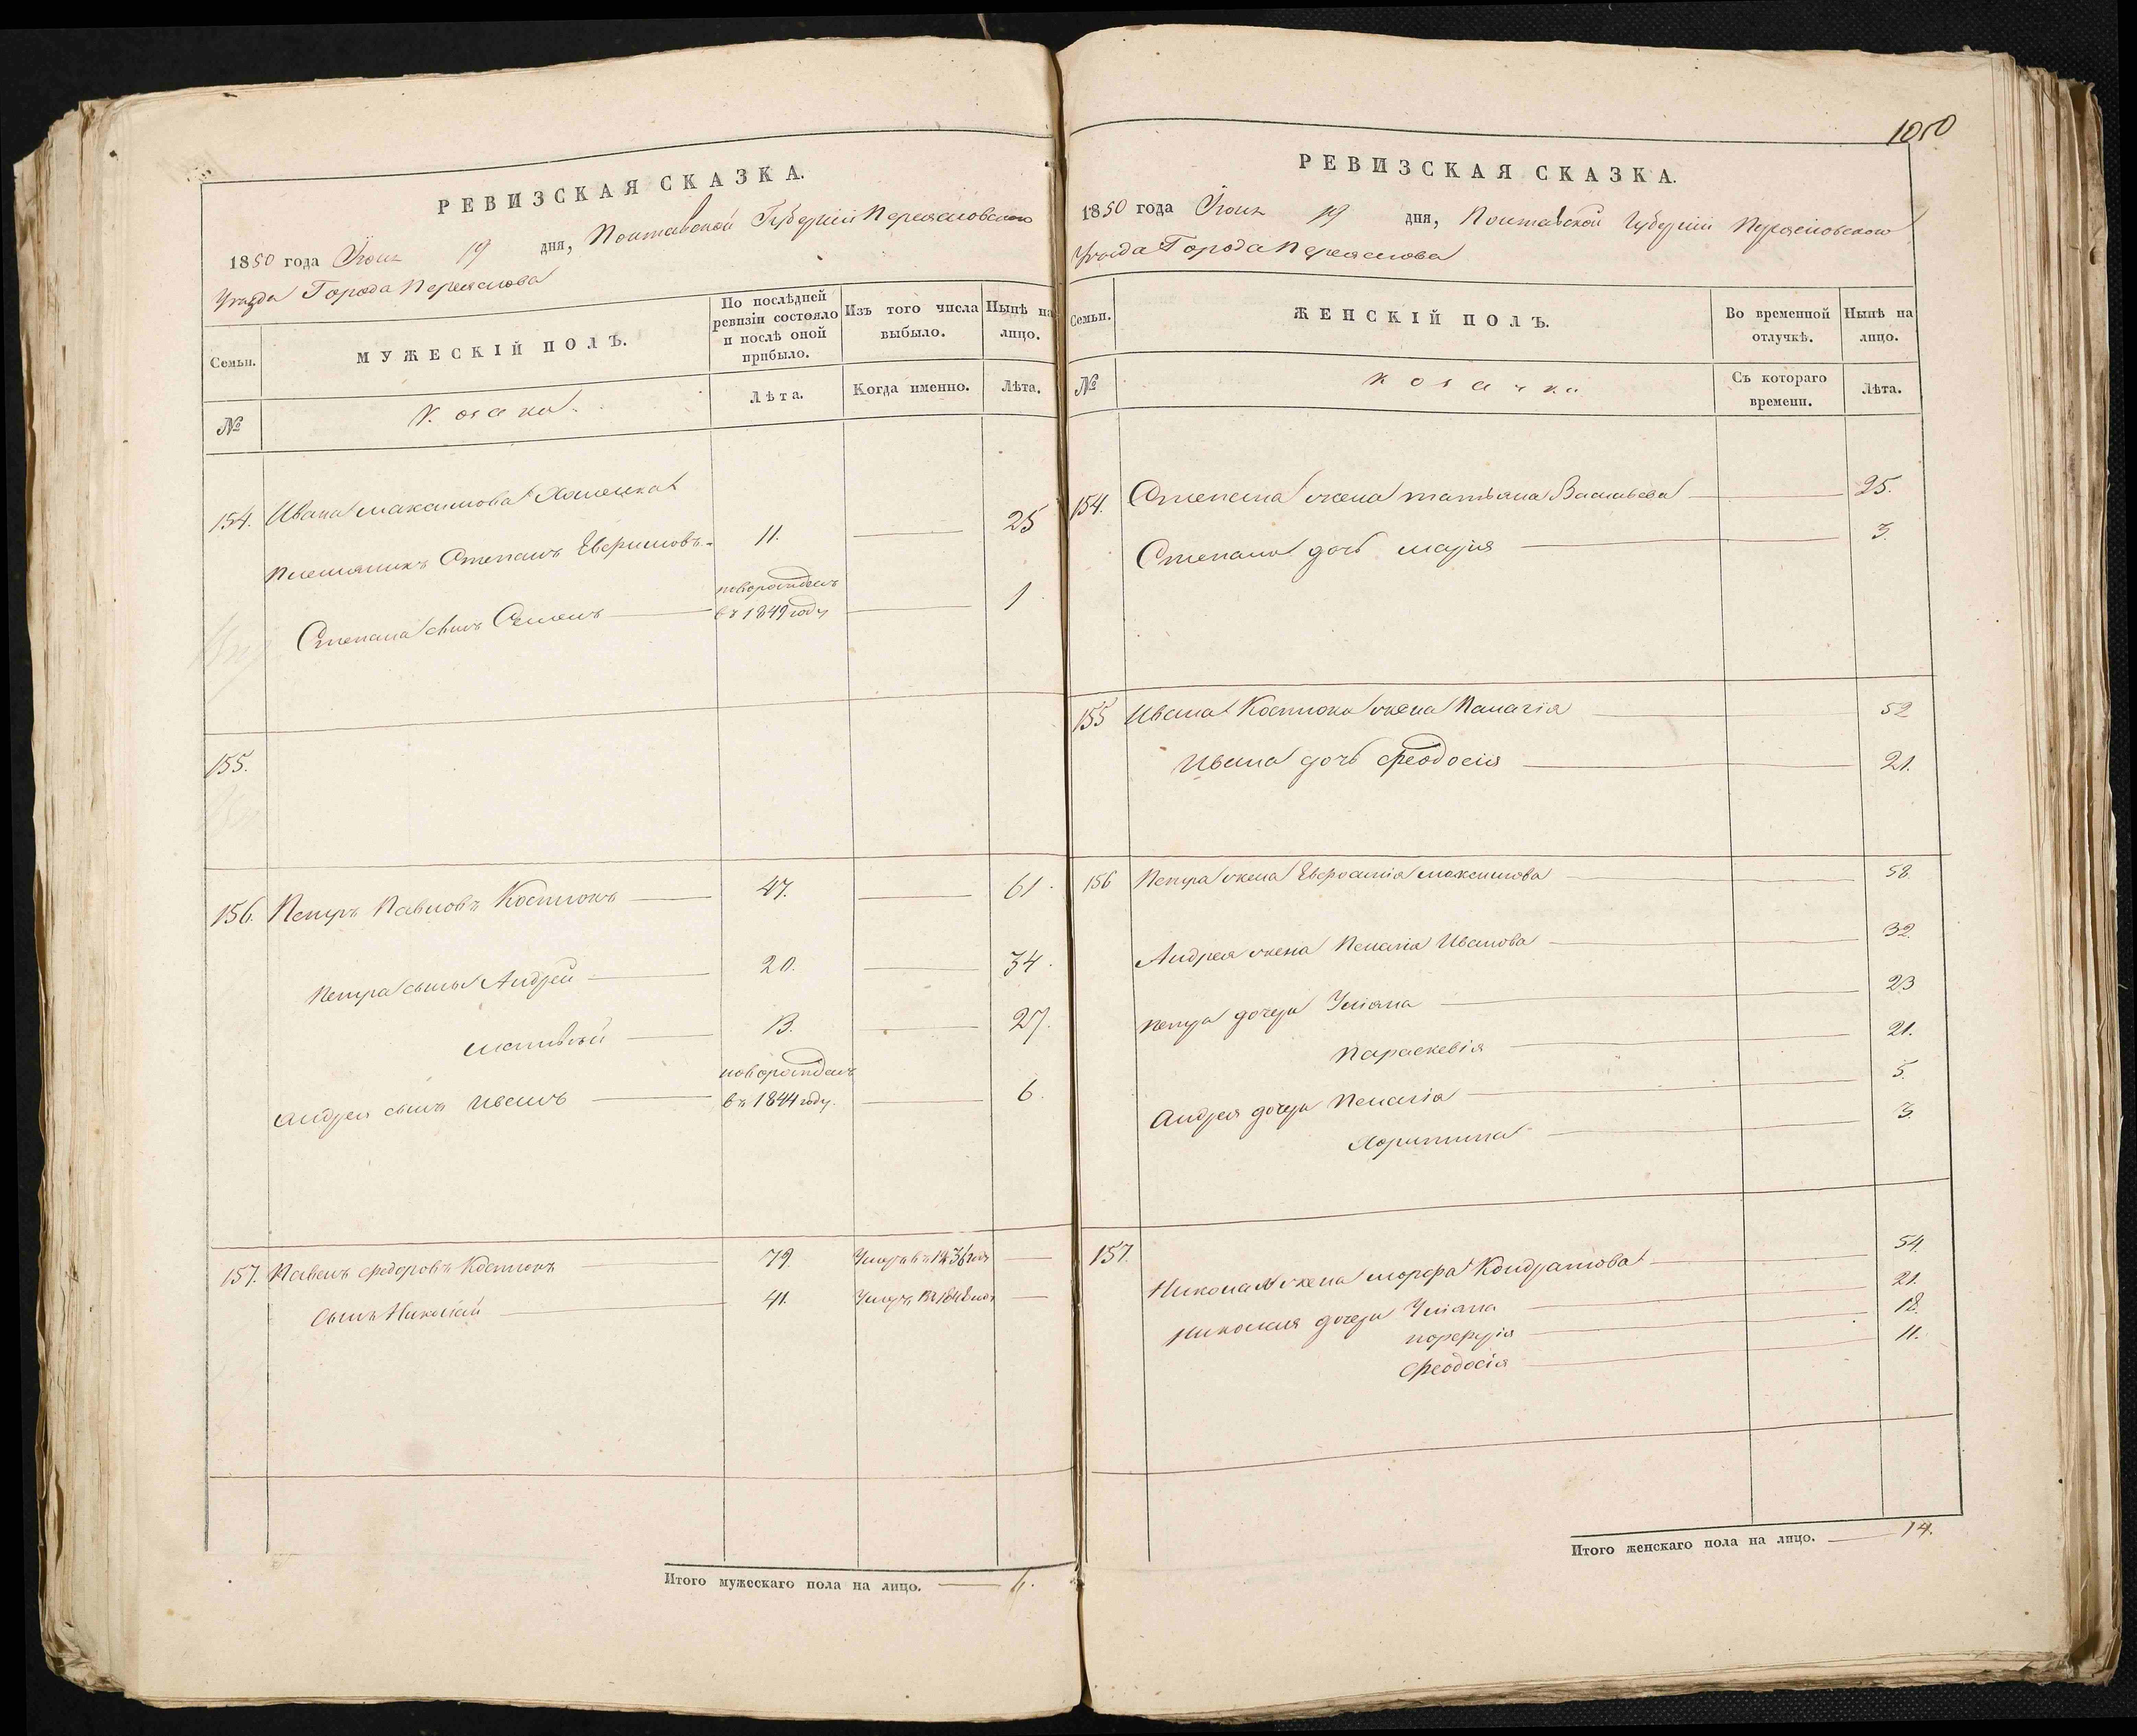 РЕВИЗСКАЯ СКАЗКА.
1850 года Іюня 19 дня, Полтавской Губерніи Переясловского
Уезда Города Переяслова
Семьи.
МУЖЕСКІЙ ПОЛЪ.
По послѣдней ревизіи состояло и послѣ оной прибыло.
Изъ того числа выбыло.
Нынѣ на лицо.
№
Козаки.
Лѣта.
Когда именно.
Лѣта.
154. Ивана Максимова
племянникъ Степанъ Евфимовъ 11. 25
Степана сынъ Семенъ новорожденъ въ 1849 году 1
155.
156. Петръ Павловъ Костюкъ 47. 61.
Петра сыны Андрей 20. 34.
Матвѣй 13. 27.
Андрея сынъ Иванъ новорожденъ въ 1844 году. 6.
157. Павелъ Федоровъ Костюкъ 79. Умеръ въ 1836 годѣ
Сынъ Николай 41. Умеръ въ 1848 годѣ
Итого мужескаго пола на лицо. 6.
1050
РЕВИЗСКАЯ СКАЗКА.
1850 года Іюня 19 дня, Полтавской Губерніи Переясловского
Уезда Города Переяслова
Семьи.
ЖЕНСКІЙ ПОЛЪ.
Во временной отлучкѣ.
Нынѣ на лицо.
№
Козачки
Съ котораго времени.
Лѣта.
154. Степана жена Татьяна Васильева 25.
Степана дочь Марія 3.
155 Ивана Костюка жена Палагія 52
Ивана дочь Феодосія 21.
156 Петра жена Евфросинія Максимова 58.
Андрея жена Пелагія Иванова 32.
Петра дочери Уліяна 23
Параскевія 21.
Андрея дочери Пелагія 5.
Харитина 3.
157. Николая жена Марфа Кондратова 54.
Николая дочери Уліяна 21.
Порфирія 18.
Феодосія 11.
Итого женскаго пола на лицо. 14.